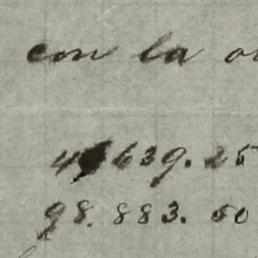 con la
639.25
98.883.50